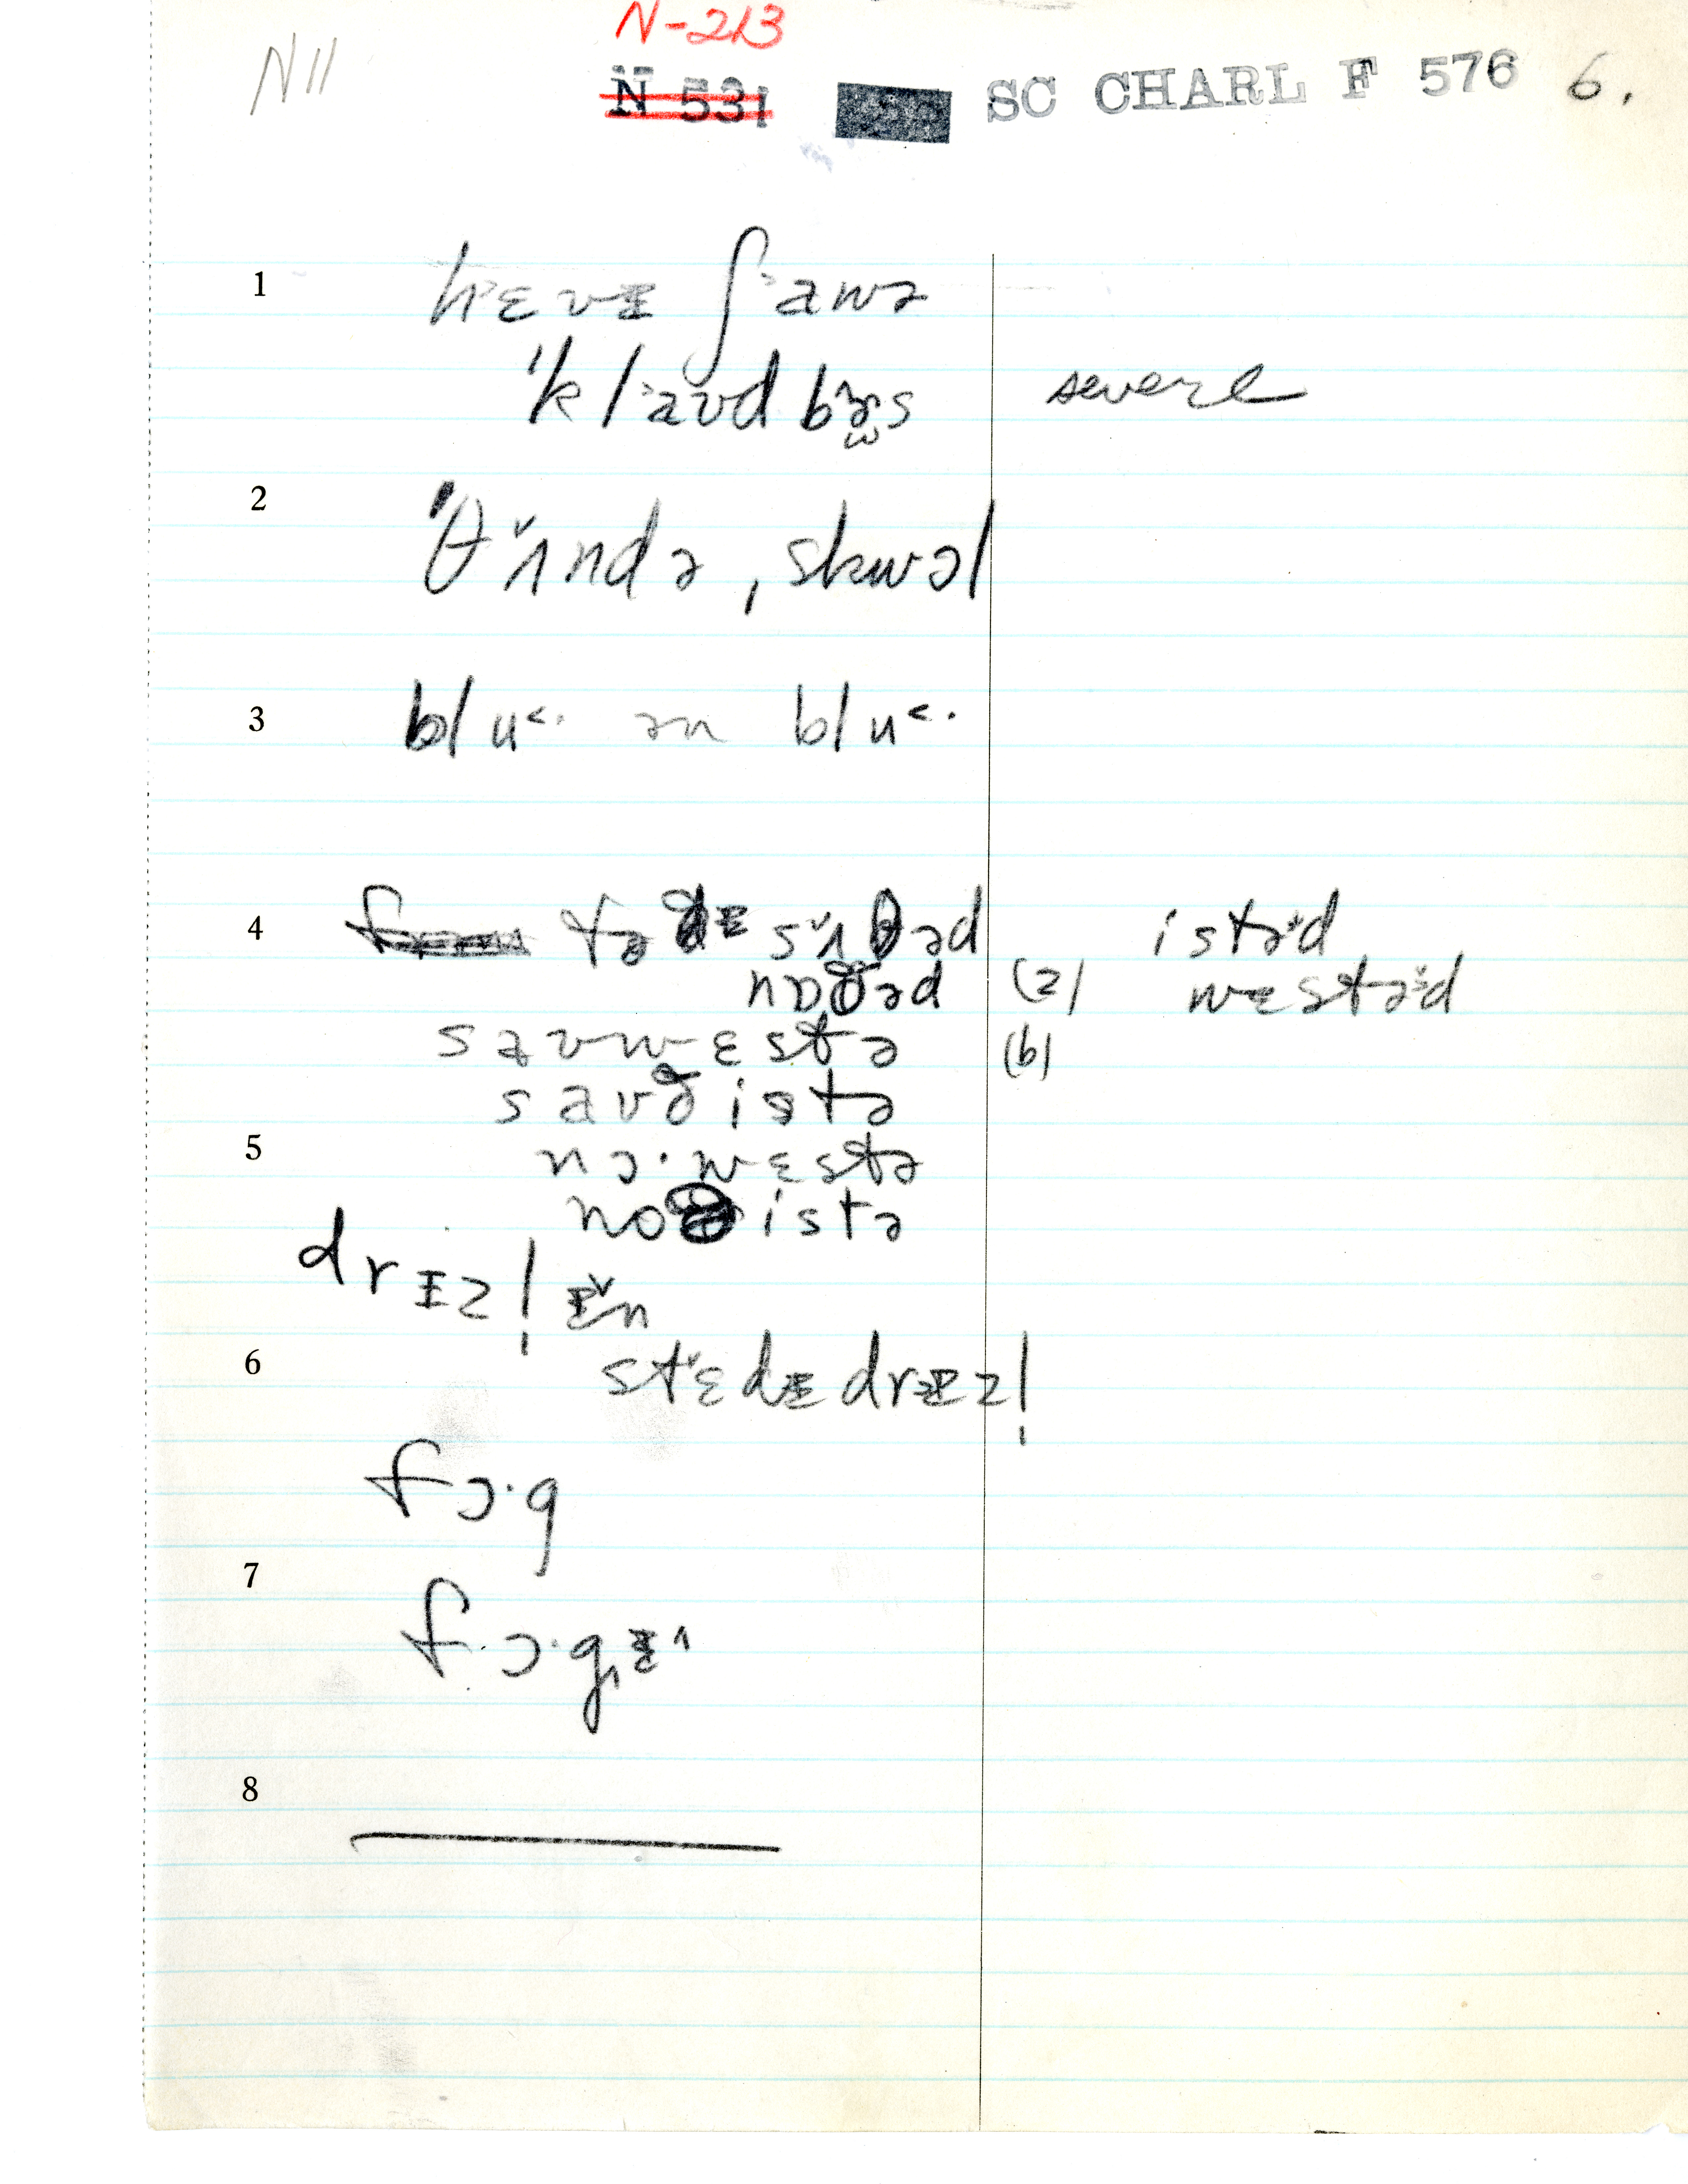 N-213
N11 N 531 SC CHARL F 576 6.
1 hɛvɪ ʃawə
ˈklaʊd bɜs severe
2 ˈθʌndə ˌskwɔl
3 blu˂· ən blu˂·
4 tə ðɪ sʌðəd istəd
nɒðəd (a) wɛstəd
saʊwɛstə (b)
saʊðistə
5 nɔ·wɛstə
istə
drɪzl̩ ɪn
6 stɛdɪ drɪzl̩
fɔ·g
7 fɔ·gɪ
8